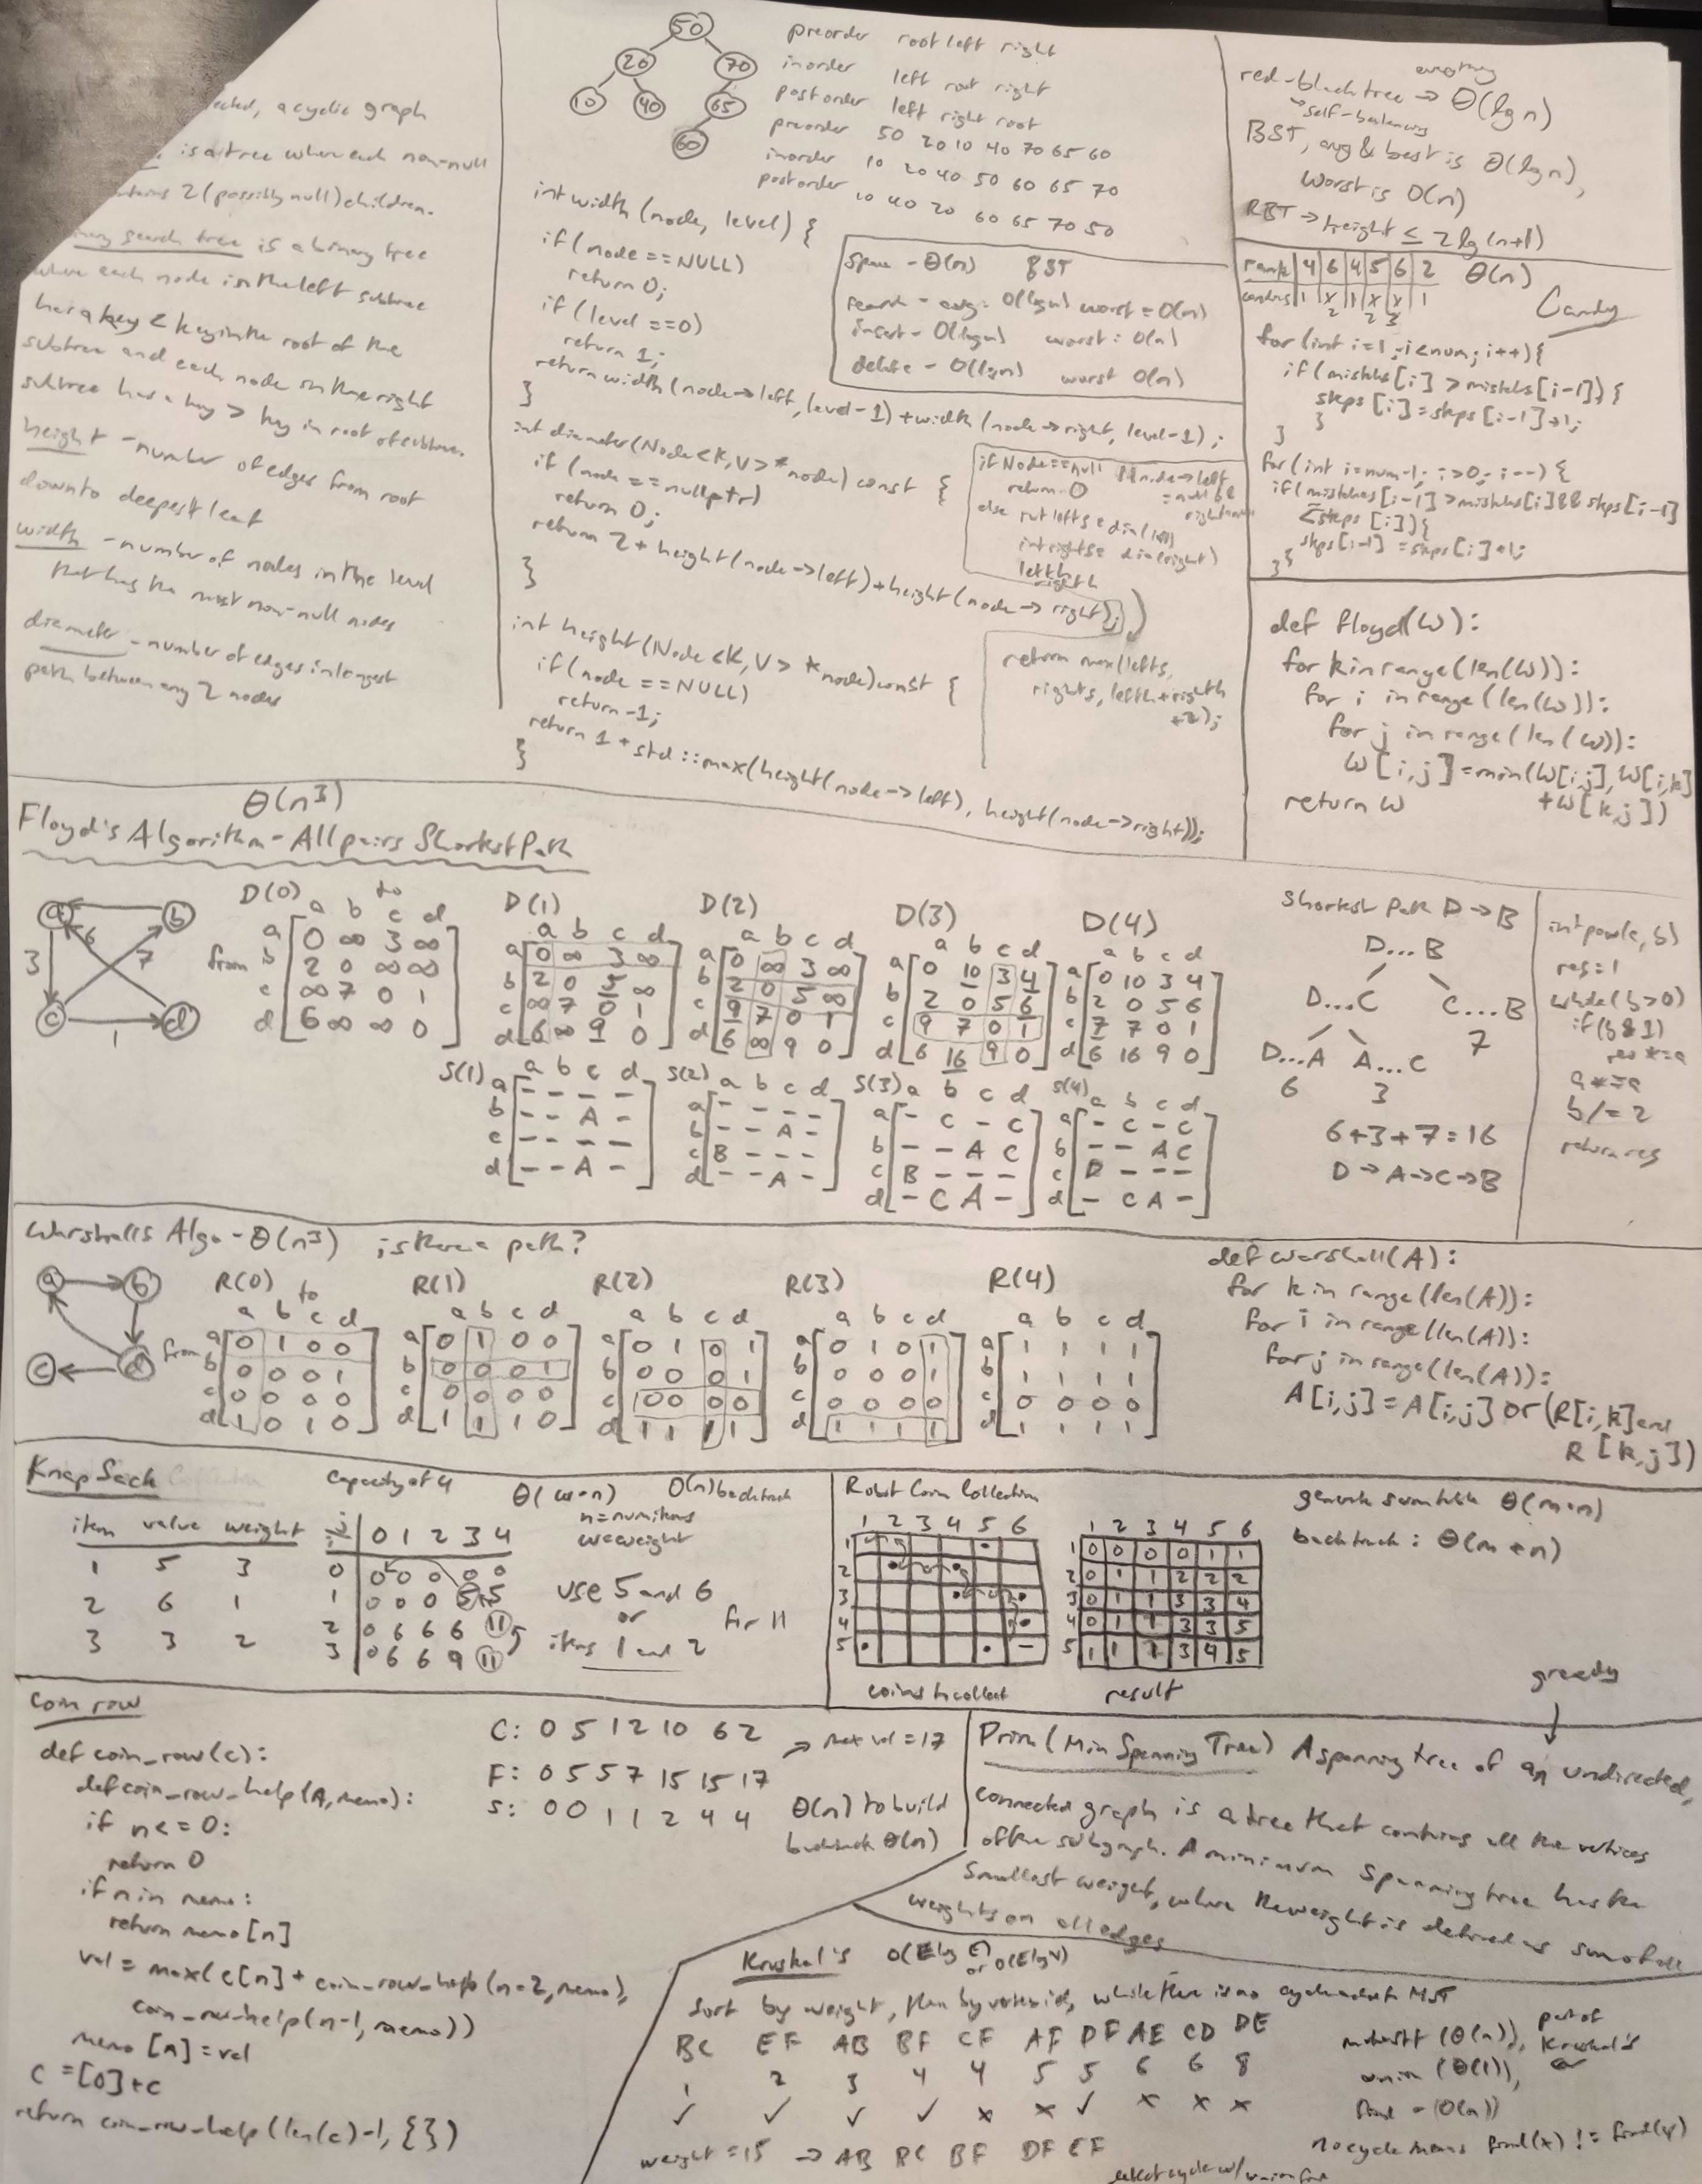 acyclic graph
is a tree where each non-null
2 (possibly null) children.
search tree is a binary tree
where each node in the left subtree
has a key < key in the root of the
subtree and each node in the right
subtree has a key > key in root of subtree.
height - number of edges from root
down to deepest leaf
width - number of nodes in the level
that has the most non-null nodes
diameter - number of edges in longest
path between any 2 nodes
50
20 70
10 40 65
60
preorder root left right
inorder left root right
postorder left right root
preorder 50 20 10 40 70 65 60
inorder 10 20 40 50 60 65 70
postorder 10 40 20 60 65 70 50
int width (node, level) {
if (node == NULL)
return 0;
if (level == 0)
return 1;
return width(node->left, level-1) + width(node->right, level-1);
}
space - Θ(n) BST
search - avg: O(log n) worst = O(n)
insert - O(log n) worst: O(n)
delete - O(lg n) worst O(n)
int diameter(Node<K,V>* node) const {
if (node == nullptr)
return 0;
return 2 + height(node->left) + height(node->right);
}
if Node==null || node->left
return 0
else
left h
right h
return max(lefts,
rights, lefth+righth
+2);
int height(Node<K,V> *node) const {
if (node == NULL)
return -1;
return 1 + std::max(height(node->left), height(node->right));
}
red-black tree -> Θ(lg n)
self-balancing
BST, avg & best is Θ(lg n),
worst is O(n)
RBT -> height ≤ 2 lg(n+1)
rank 4 6 4 5 6 2 Θ(n)
1 x 1 x x 1
2 2 3
Candy
for (int i=1; i<num; i++){
if (mistakes[i] > mistakes[i-1]) {
steps[i] = steps[i-1]+1;
}
}
for (int i=num-1; i>0; i--) {
if(mistakes[i-1] > mistakes[i] && steps[i-1]
<= steps[i]){
steps[i-1] = steps[i]+1;
}}
def floyd(W):
for k in range(len(W)):
for i in range(len(W)):
for j in range(len(W)):
W[i,j]=min(W[i,j], W[i,k]
+W[k,j])
return W
Θ(n³)
Floyd's Algorithm - All pairs Shortest Path
a b
3 6 7
c d
1
D(0) to
a b c d
a 0 ∞ 3 ∞
from b 2 0 ∞ ∞
c ∞ 7 0 1
d 6 ∞ ∞ 0
D(1)
a b c d
a 0 ∞ 3 ∞
b 2 0 5 ∞
c ∞ 7 0 1
d 6 ∞ 9 0
D(2)
a b c d
a 0 ∞ 3 ∞
b 2 0 5 ∞
c 9 7 0 1
d 6 ∞ 9 0
D(3)
a b c d
a 0 10 3 4
b 2 0 5 6
c 9 7 0 1
d 6 16 9 0
D(4)
a b c d
a 0 10 3 4
b 2 0 5 6
c 7 7 0 1
d 6 16 9 0
S(1) a b c d
a - - - -
b - - A -
c - - - -
d - - A -
S(2) a b c d
a - - - -
b - - A -
c B - - -
d - - A -
S(3) a b c d
a - C - C
b - - A C
c B - - -
d - C A -
S(4) a b c d
a - C - C
b - - A C
c D - - -
d - C A -
Shortest Path D -> B
D...B
D...C C...B
D...A A...C 7
6 3
6+3+7=16
D->A->C->B
int pow(a, b)
res=1
while(b>0)
if(b&1)
res *= a
a *= a
b /= 2
return res
Warshalls Algo - Θ(n³) is there a path?
a b
c d
R(0) to
a b c d
a 0 1 0 0
from b 0 0 0 1
c 0 0 0 0
d 1 0 1 0
R(1)
a b c d
a 0 1 0 0
b 0 0 0 1
c 0 0 0 0
d 1 1 1 0
R(2)
a b c d
a 0 1 0 1
b 0 0 0 1
c 0 0 0 0
d 1 1 1 1
R(3)
a b c d
a 0 1 0 1
b 0 0 0 1
c 0 0 0 0
d 1 1 1 1
R(4)
a b c d
a 1 1 1 1
b 1 1 1 1
c 0 0 0 0
d 1 1 1 1
def warshall(A):
for k in range(len(A)):
for i in range(len(A)):
for j in range(len(A)):
A[i,j]=A[i,j] or (R[i,k] and
R[k,j])
Knapsack
Capacity of 4 Θ(w·n) O(n) backtrack
n=num items
w=weight
item value weight
1 5 3
2 6 1
3 3 2
j
i 0 1 2 3 4
0 0 0 0 0 0
1 0 0 0 5 5
2 0 6 6 6 11
3 0 6 6 9 11
use 5 and 6
or for 11
items 1 and 2
Robot Coin Collection
1 2 3 4 5 6
1
2
3
4
5
coins to collect
1 2 3 4 5 6
1 0 0 0 0 1 1
2 0 1 1 2 2 2
3 0 1 1 3 3 4
4 0 1 1 3 3 5
5 1 1 1 3 4 5
result
generate sum table Θ(m*n)
backtrack: Θ(m+n)
coin row
def coin_row(c):
def coin_row_help(A, memo):
if n <= 0:
return 0
if n in memo:
return memo[n]
val = max(c[n] + coin_row_help(n-2, memo),
coin_row_help(n-1, memo))
memo[n] = val
C = [0]+c
return coin_row_help(len(c)-1, {})
C: 0 5 1 2 10 6 2
F: 0 5 5 7 15 15 17
S: 0 0 1 1 2 4 4
-> max val = 17
Θ(n) to build
backtrack Θ(n)
greedy
Prim (Min Spanning Tree) A spanning tree of an undirected,
connected graph is a tree that contains all the vertices
of the subgraph. A minimum spanning tree has the
smallest weight, where the weight is defined as sum of all
weights on all edges
Kruskal's O(E lg E) or O(E lg V)
Sort by weight, then by vertex id, while there is no cycle MST
BC EF AB BF CF AF DF AE CD DE
1 2 3 4 4 5 5 6 6 8
✓ ✓ ✓ ✓ x x ✓ x x x
weight = 15 -> AB BC BF DF EF
detect cycle w/ union find
(Θ(n)), part of
Kruskal's
union (Θ(1)),
find - (O(n))
no cycle means find(x) != find(y)